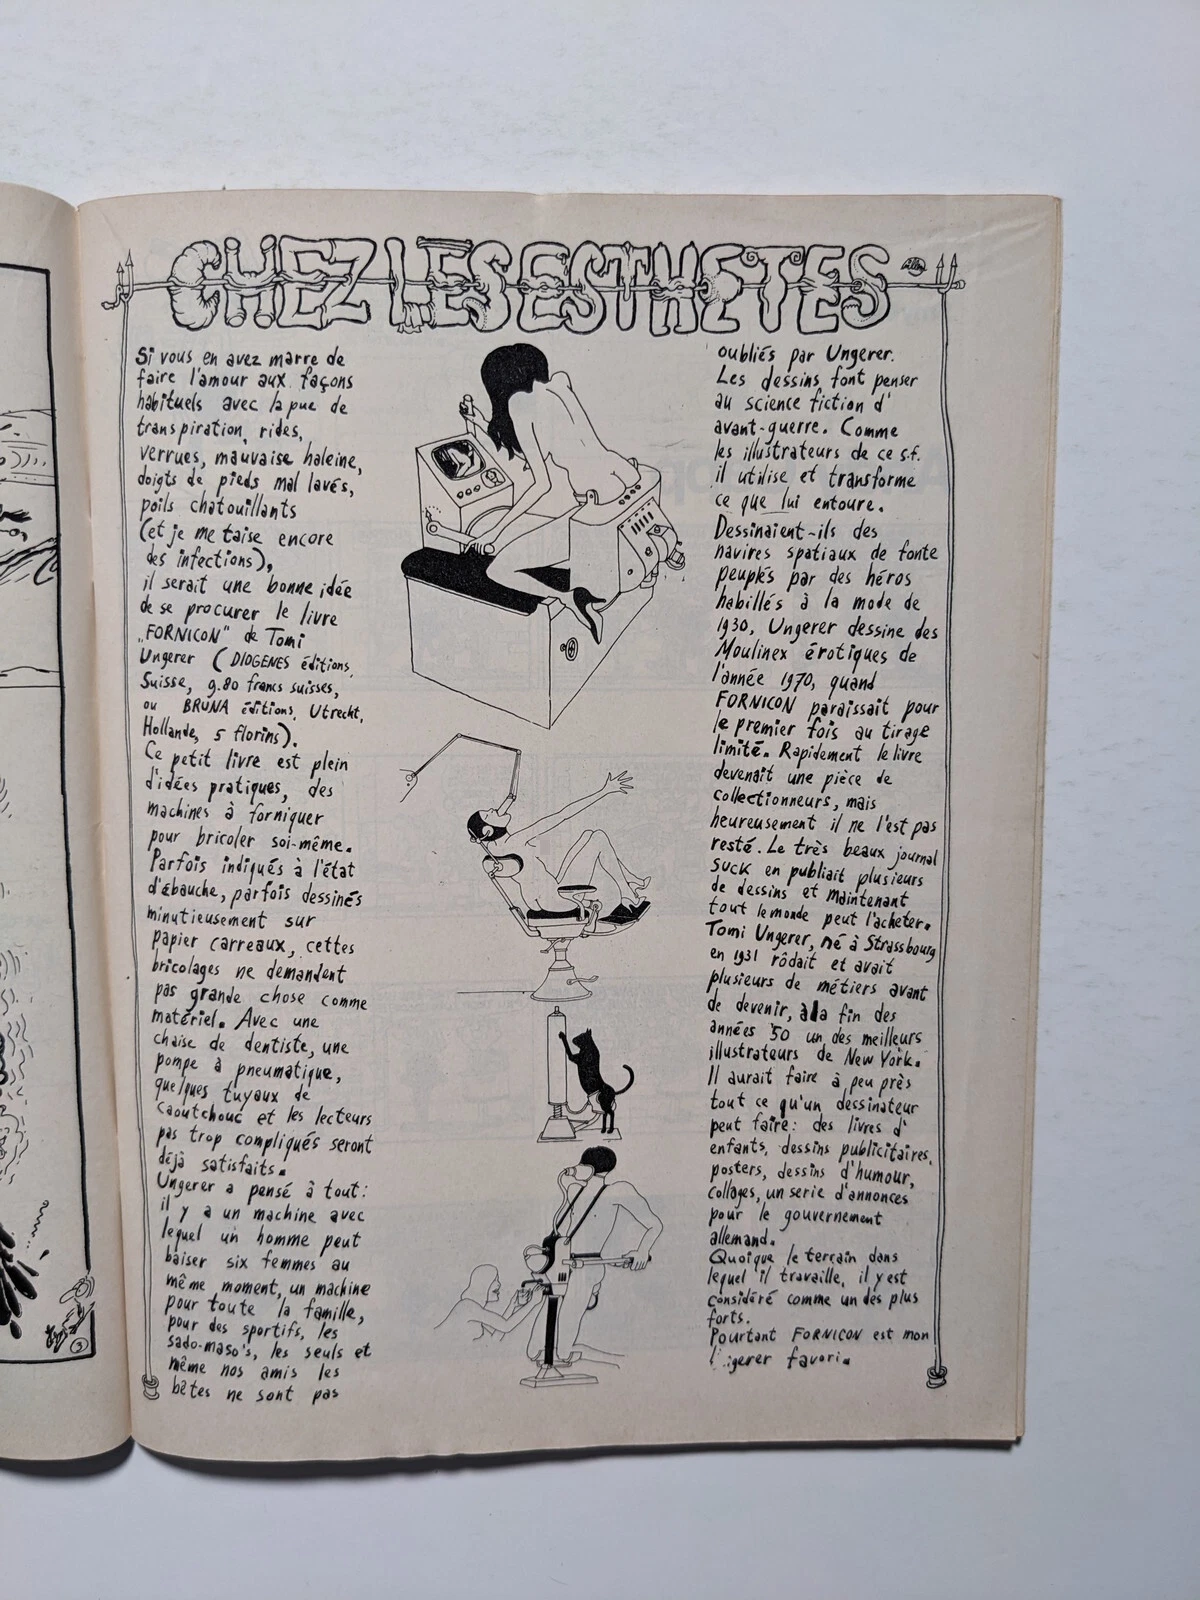 CHEZ LES ESTHETES
Si vous en avez marre de
faire l'amour aux façons
habituels avec la pue de
transpiration, rides,
verrues, mauvaise haleine,
doigts de pieds mal lavés,
poils chatouillants
(et je me taise encore
des infections),
il serait une bonne idée
de se procurer le livre
„FORNICON" de Tomi
Ungerer (DIOGENES éditions,
Suisse, 9.80 francs suisses,
ou BRUNA éditions, Utrecht,
Hollande, 5 florins).
Ce petit livre est plein
d'idées pratiques, des
machines à forniquer
pour bricoler soi-même.
Parfois indiqués à l'état
d'ébauche, parfois dessinés
minutieusement sur
papier carreaux, cettes
bricolages ne demandent
pas grande chose comme
matériel. Avec une
chaise de dentiste, une
pompe à pneumatique,
quelques tuyaux de
caoutchouc et les lecteurs
pas trop compliqués seront
déjà satisfaits.
Ungerer a pensé à tout:
il y a un machine avec
lequel un homme peut
baiser six femmes au
même moment, un machine
pour toute la famille,
pour des sportifs, les
sado-maso's, les seuls et
même nos amis les
bêtes ne sont pas
oubliés par Ungerer.
Les dessins font penser
au science fiction d'
avant-guerre. Comme
les illustrateurs de ce s.f.
il utilise et transforme
ce que lui entoure.
Dessinaient-ils des
navires spatiaux de fonte
peuplés par des héros
habillés à la mode de
1930, Ungerer dessine des
Moulinex érotiques de
l'année 1970, quand
FORNICON paraissait pour
le premier fois au tirage
limité. Rapidement le livre
devenait une pièce de
collectionneurs, mais
heureusement il ne l'est pas
resté. Le très beaux journal
SUCK en publiait plusieurs
de dessins et maintenant
tout le monde peut l'acheter.
Tomi Ungerer, né à Strassbourg
en 1931 rôdait et avait
plusieurs de métiers avant
de devenir, à la fin des
années '50 un des meilleurs
illustrateurs de New York.
Il aurait faire à peu près
tout ce qu'un dessinateur
peut faire: des livres d'
enfants, dessins publicitaires,
posters, dessins d'humour,
collages, un serie d'annonces
pour le gouvernement
allemand.
Quoique le terrain dans
lequel il travaille, il y est
considéré comme un des plus
forts.
Pourtant FORNICON est mon
favori.
3